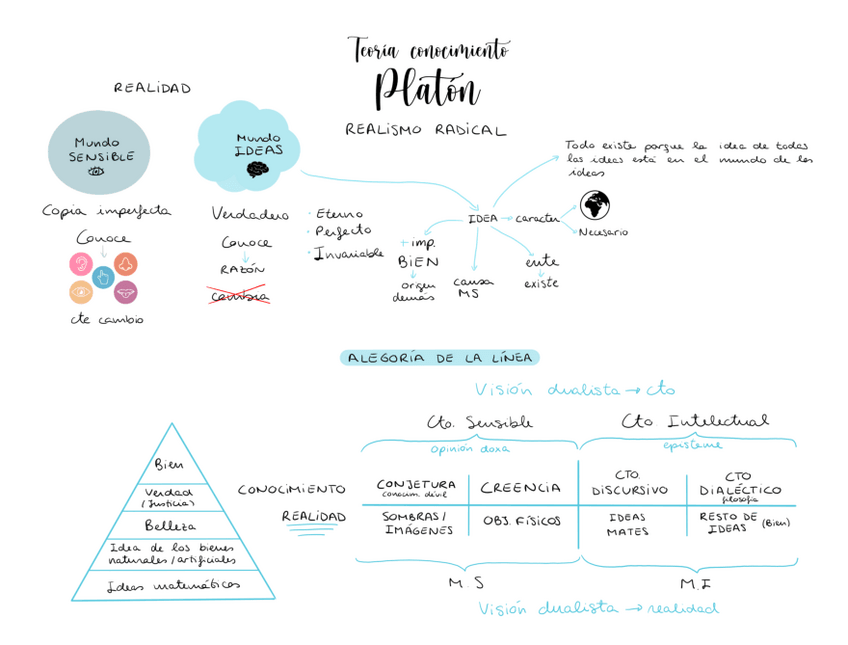 Teoría conocimiento
Platón
REALISMO RADICAL
REALIDAD
Mundo
SENSIBLE
Copia imperfecta
Conoce
cte cambio
Mundo
IDEAS
Verdadero
Conoce
RAZÓN
cambia
· Eterno
· Perfecto
· Invariable
IDEA → caracter
Necesario
Todo existe porque la idea de todas
las ideas está en el mundo de las
ideas
+ imp.
BIEN
origen
demás
causa
MS
ente
existe
ALEGORÍA DE LA LÍNEA
Visión dualista → cto
Cto. Sensible
opinión doxa
Cto Intelectual
episteme
CONOCIMIENTO
CONJETURA
CREENCIA
CTO.
DISCURSIVO
CTO
DIALÉCTICO
filosofía
REALIDAD
SOMBRAS/
IMÁGENES
OBJ. FÍSICOS
IDEAS
MATES
RESTO DE
IDEAS (Bien)
M.S
M.I
Visión dualista → realidad
Bien
Verdad
(Justicia)
Belleza
Idea de los bienes
naturales/artificiales
Ideas matemáticas